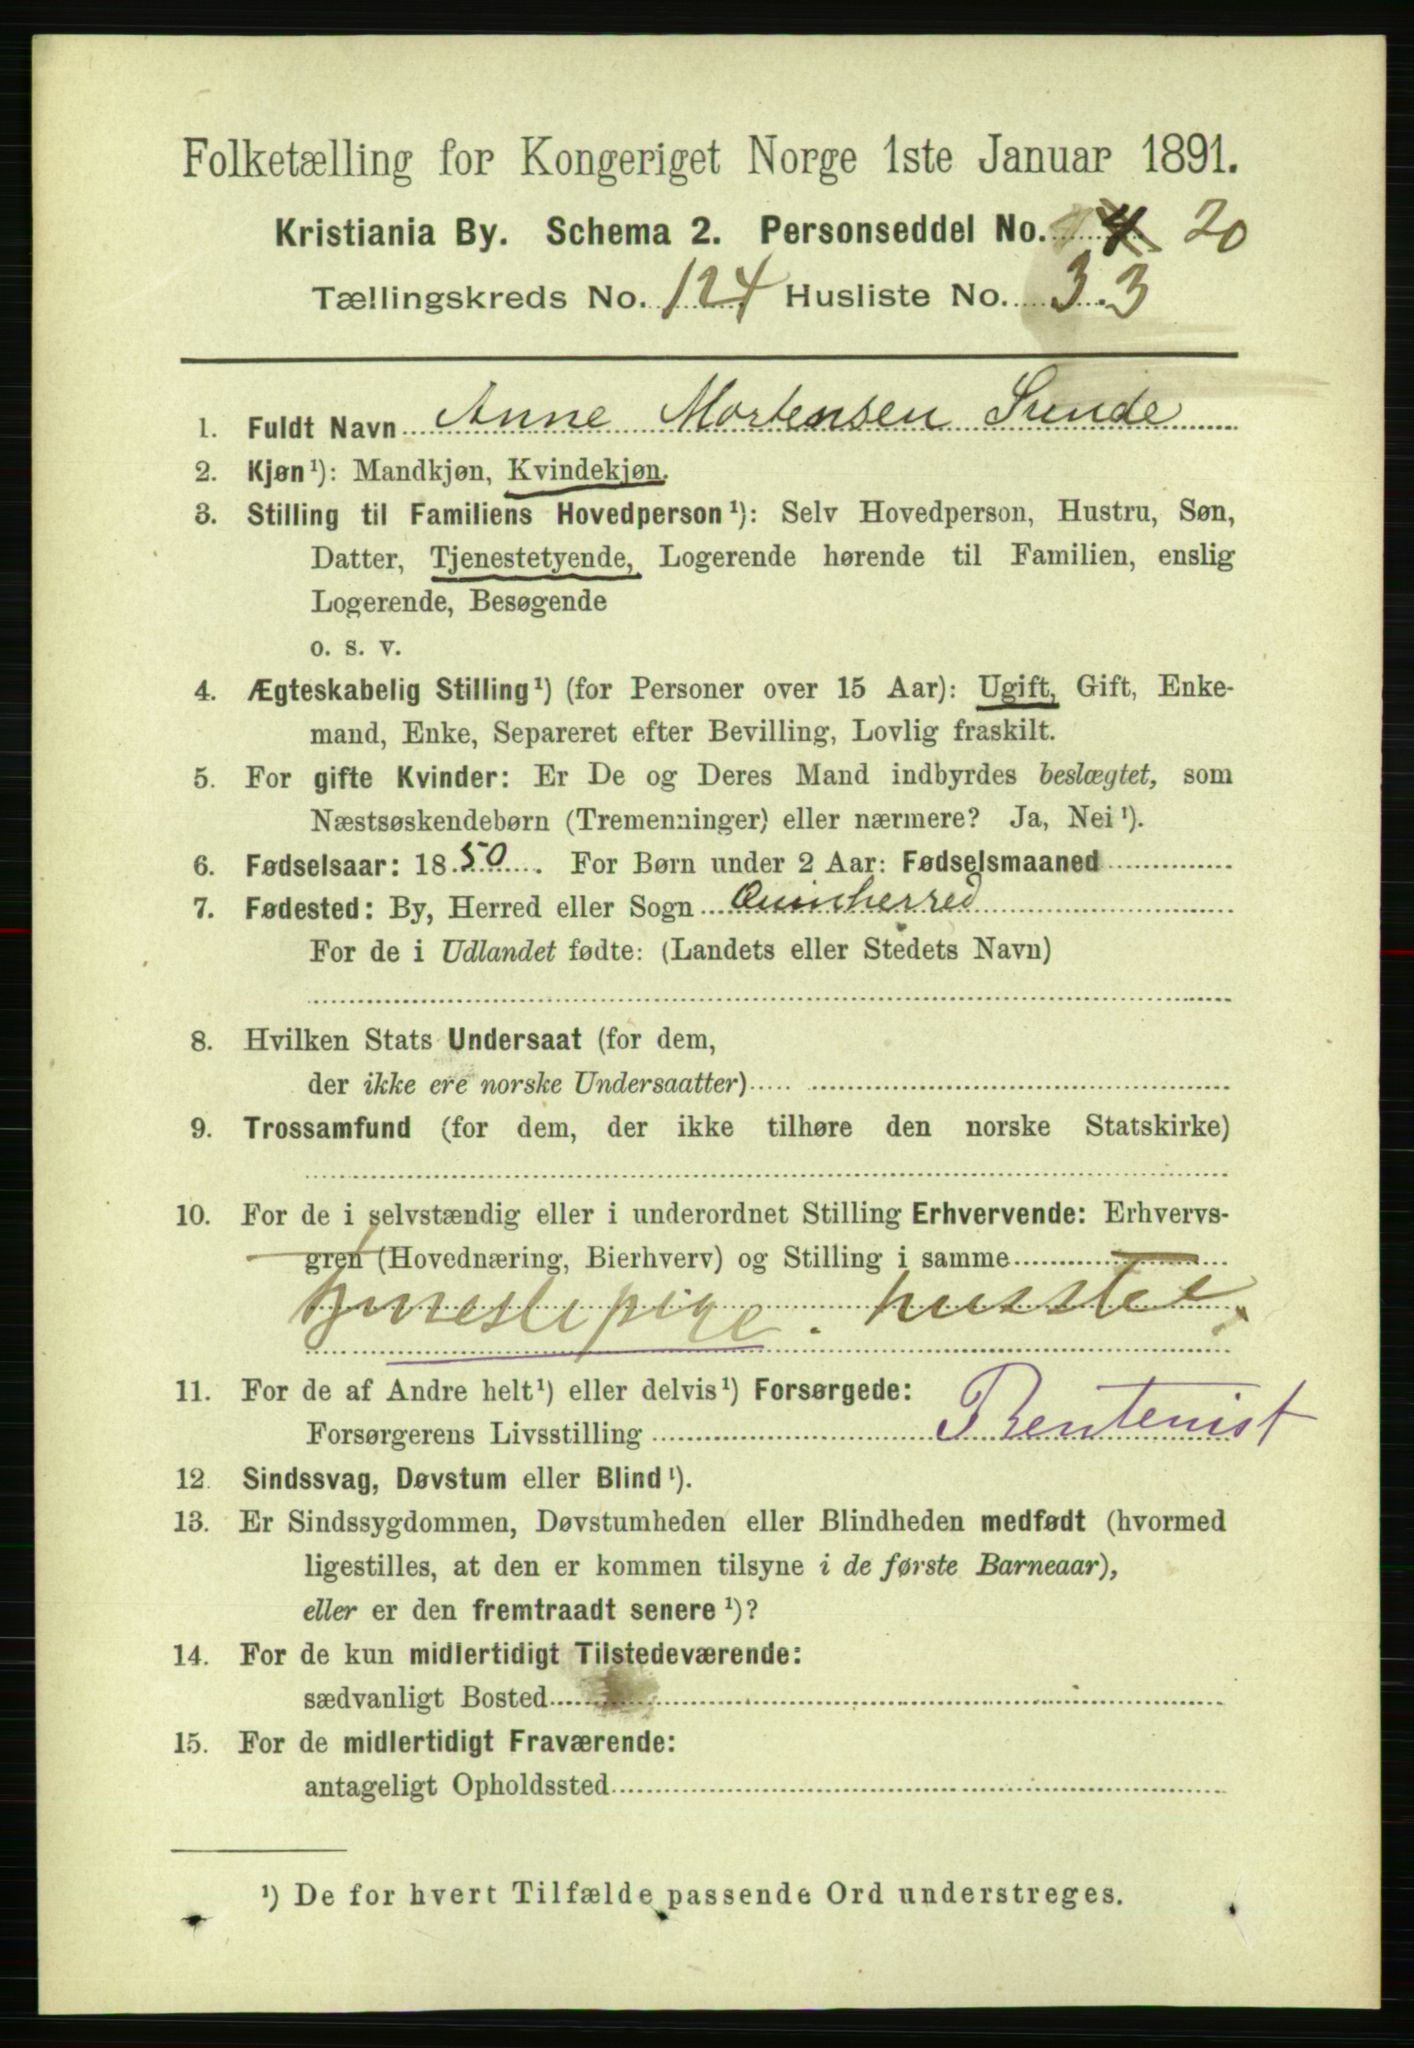 Folketælling for Kongeriget Norge 1ste Januar 1891.
Kristiania By. Schema 2. Personseddel No. 20
Tællingskreds No. 124 Husliste No. 33
1. Fuldt Navn Anne Mortensen Sunde
2. Kjøn¹): Mandkjøn, Kvindekjøn.
3. Stilling til Familiens Hovedperson¹): Selv Hovedperson, Hustru, Søn,
Datter, Tjenestetyende, Logerende hørende til Familien, enslig
Logerende, Besøgende
o. s. v.
4. Ægteskabelig Stilling¹) (for Personer over 15 Aar): Ugift, Gift, Enke-
mand, Enke, Separeret efter Bevilling, Lovlig fraskilt.
5. For gifte Kvinder: Er De og Deres Mand indbyrdes beslægtet, som
Næstsøskendebørn (Tremenninger) eller nærmere? Ja, Nei¹).
6. Fødselsaar: 1850. For Børn under 2 Aar: Fødselsmaaned
7. Fødested: By, Herred eller Sogn Quinherred
For de i Udlandet fødte: (Landets eller Stedets Navn)
8. Hvilken Stats Undersaat (for dem,
der ikke ere norske Undersaatter)
9. Trossamfund (for dem, der ikke tilhøre den norske Statskirke)
10. For de i selvstændig eller i underordnet Stilling Erhvervende: Erhvervs-
gren (Hovednæring, Bierhverv) og Stilling i samme
Tjenestepige. husstel.
11. For de af Andre helt¹) eller delvis¹) Forsørgede:
Forsørgerens Livsstilling Rentenist
12. Sindssvag, Døvstum eller Blind¹).
13. Er Sindssygdommen, Døvstumheden eller Blindheden medfødt (hvormed
ligestilles, at den er kommen tilsyne i de første Barneaar),
eller er den fremtraadt senere¹)?
14. For de kun midlertidigt Tilstedeværende:
sædvanligt Bosted
15. For de midlertidigt Fraværende:
antageligt Opholdssted
¹) De for hvert Tilfælde passende Ord understreges.